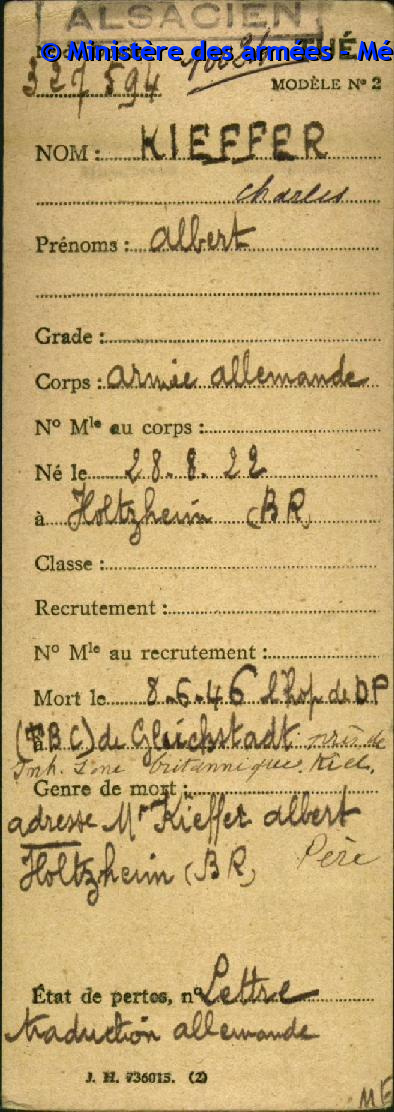 ALSACIEN
© Ministère des armées - Mé
327594
MODÈLE Nº 2
NOM : KIEFFER
Charles
Prénoms : Albert
Grade :
Corps : Armée allemande
Nº Mle au corps :
Né le 28.8.22
à Holtzheim (BR)
Classe :
Recrutement :
Nº Mle au recrutement :
Mort le 8.6.46 l'hop. de DP
à (TBC) de Gluckstadt près de
Inh. Zone britannique. Kiel.
Genre de mort :
adresse Mr Kieffer albert
Père
Holtzheim (BR)
État de pertes, nº Lettre
traduction allemande
J. H. 736015. (2)